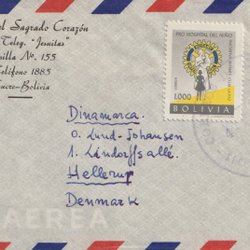 el Sagrado Corazón
Teleg. "Jesuitas"
silla Nº. 155
Teléfono 1885
Oruro-Bolivia
PRO HOSPITAL DEL NIÑO
1.000
BOLIVIA
Dinamarca.
O. Lund-Johansen
1. Lándorffsallé.
Hellerup
Denmark
AEREA